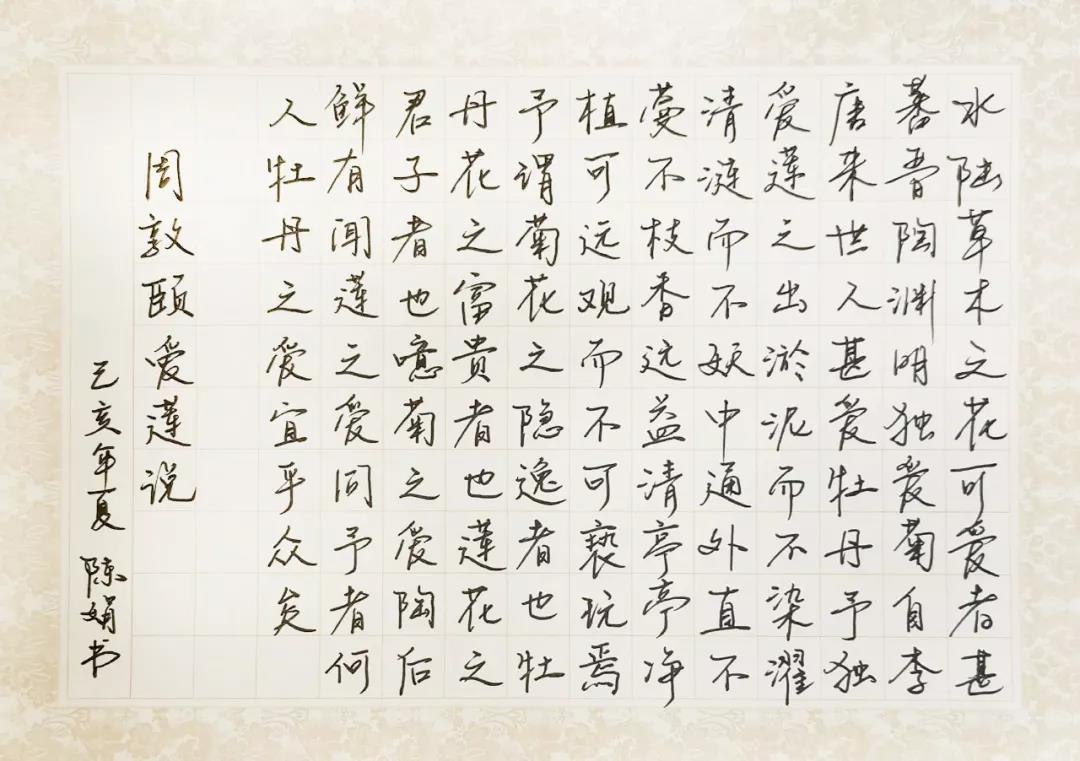 水陆草木之花可爱者甚
蕃晋陶渊明独爱菊自李
唐来世人甚爱牡丹予独
爱莲之出淤泥而不染濯
清涟而不妖中通外直不
蔓不枝香远益清亭亭净
植可远观而不可亵玩焉
予谓菊花之隐逸者也牡
丹花之富貴者也莲花之
君子者也噫菊之爱陶后
鲜有闻莲之爱同予者何
人牡丹之爱宜乎众矣
周敦颐爱莲说
己亥年夏 陈娟书